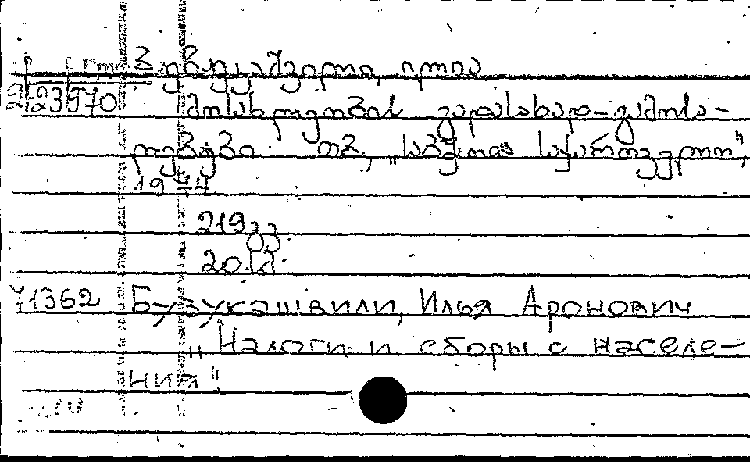 ბუზუკაშვილი, ილია
223970 მოსახლეობის გადასახად-გამოსა-
ღებები თბ, „საბჭოთა საქართველო",
1974
219 გვ.
71362 Бузукашвили, Илья Аронович
„Налоги и сборы с населе-
ния"